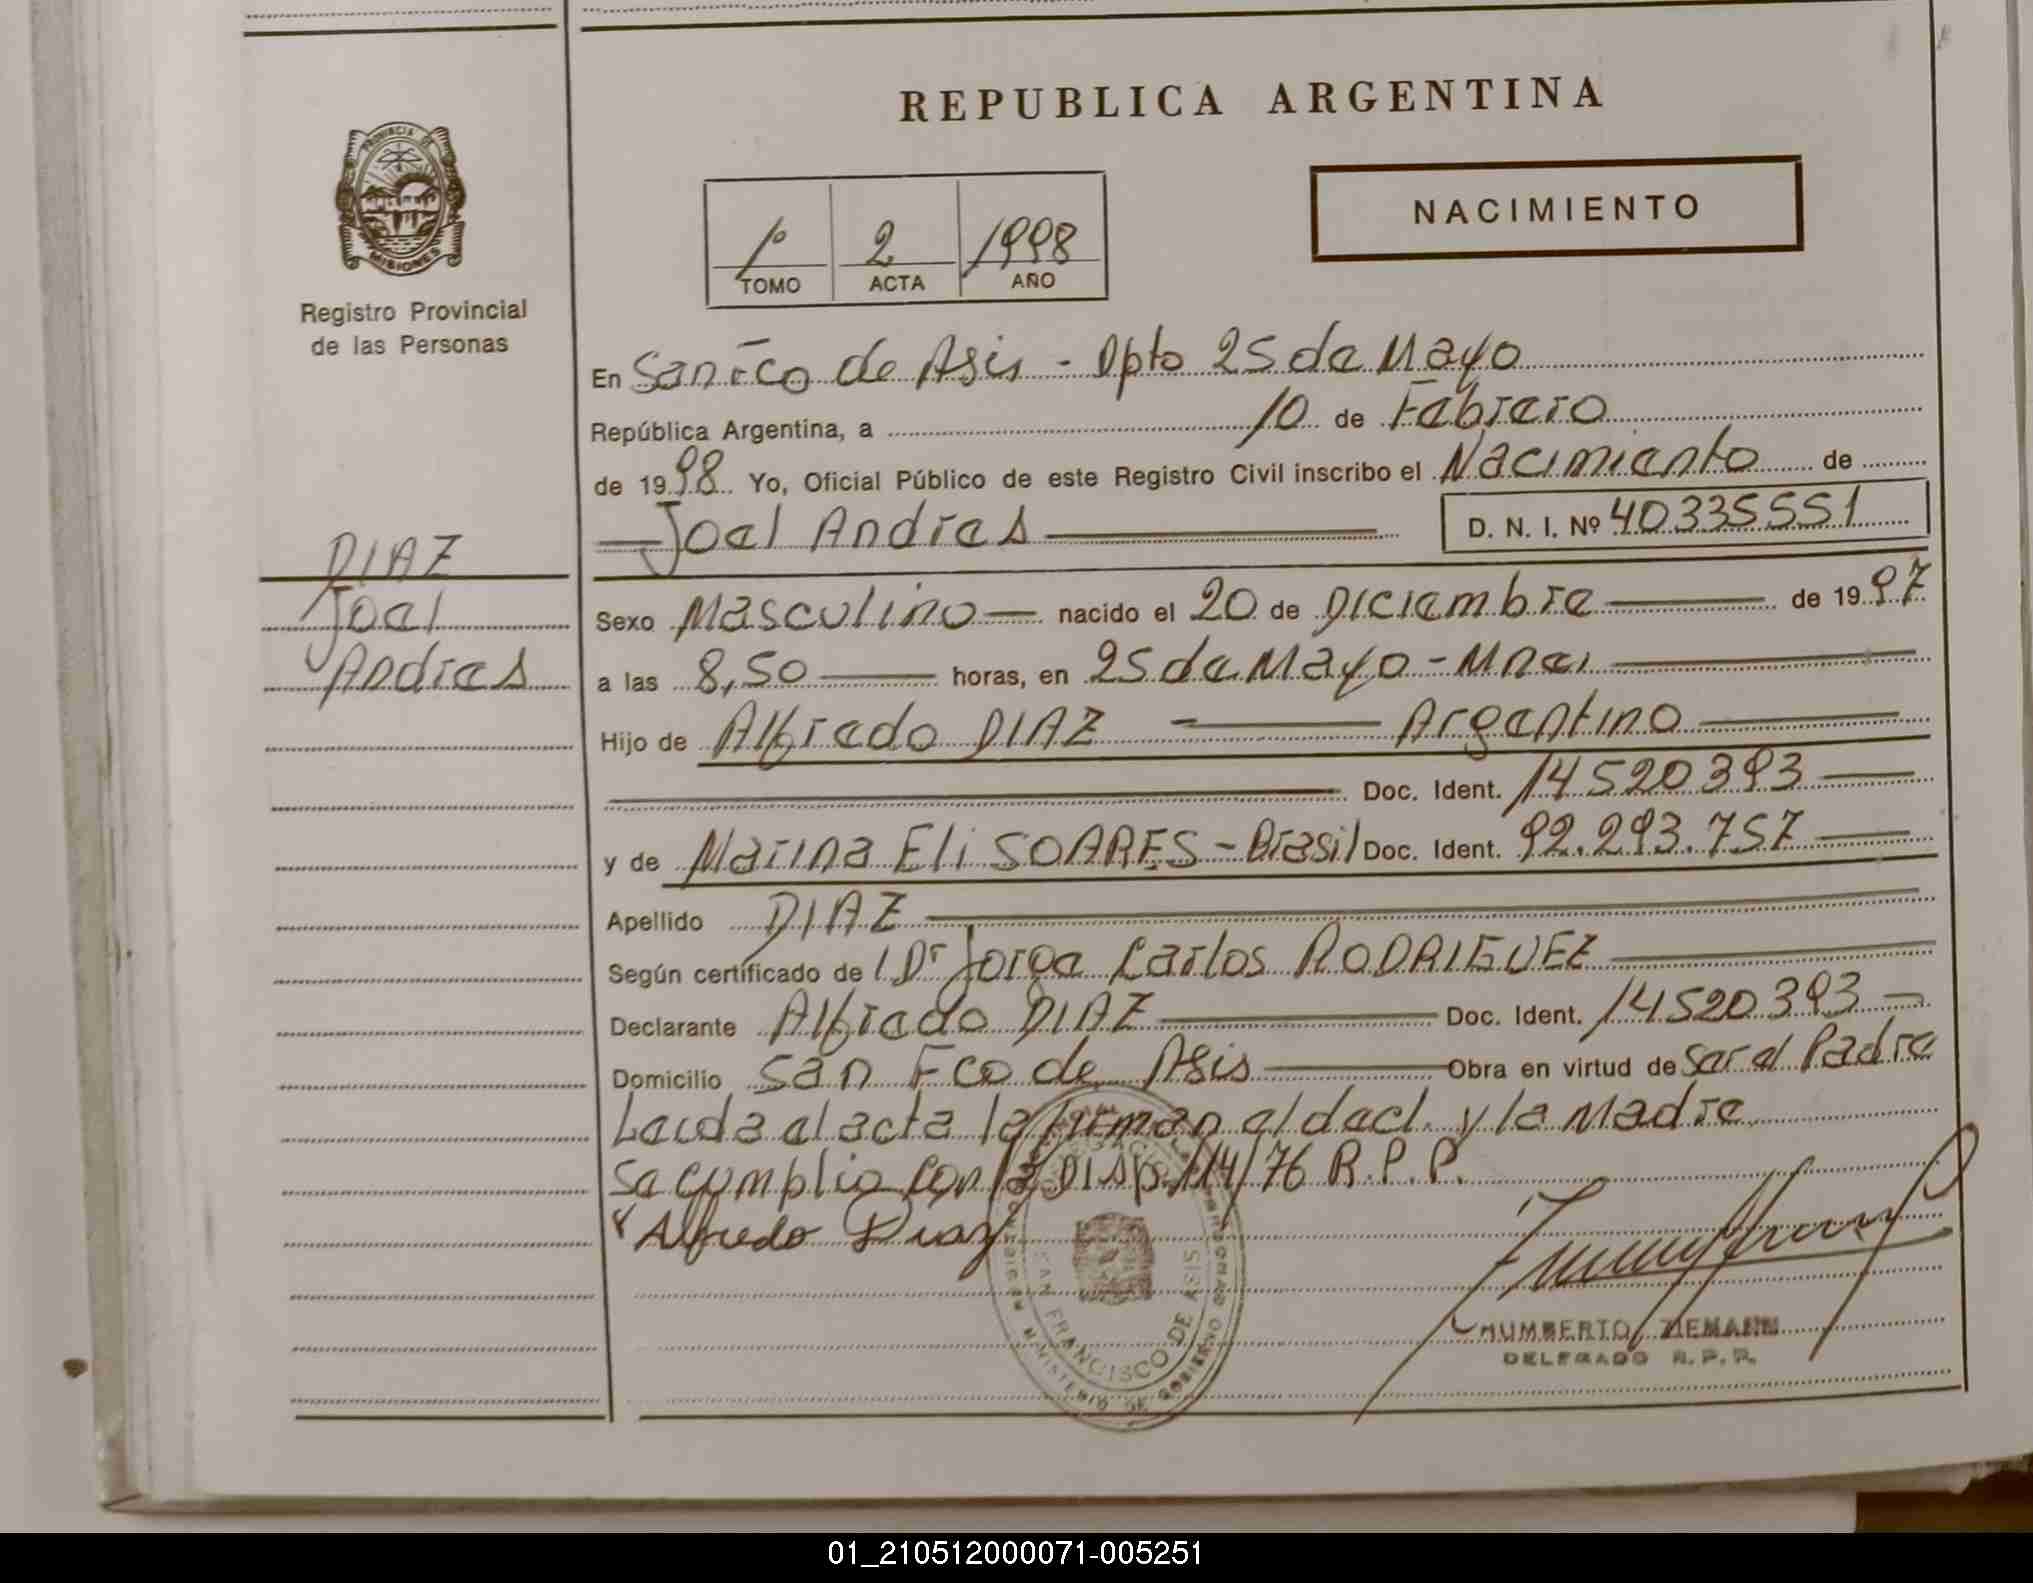 REPUBLICA ARGENTINA
NACIMIENTO
1º 2 1998
TOMO ACTA AÑO
PROVINCIA DE
MISIONES
Registro Provincial
de las Personas
En San Fco de Asis - Dpto 25 de Mayo
República Argentina, a 10 de Febrero
de 1998 Yo, Oficial Público de este Registro Civil inscribo el Nacimiento de
Joel Andres D. N. I. Nº 40335551
DIAZ
Joel
Andres
Sexo Masculino nacido el 20 de Diciembre de 1997
a las 8,50 horas, en 25 de Mayo - Mnes
Hijo de Alfredo DIAZ - Argentino
Doc. Ident. 14520393
y de Marina Eli SOARES - Brasil Doc. Ident. 92.293.757
Apellido DIAZ
Según certificado de l Dr Jorge Carlos RODRIGUEZ
Declarante Alfredo DIAZ Doc. Ident. 14520393
Domicilio San Fco de Asis Obra en virtud de ser el Padre
Leida el acta la firman el decl. y la Madre
Se cumplio con la Disp. 114/76 R.P.P.
Alfredo Diaz
SAN FRANCISCO DE ASIS
MINISTERIO DE GOBIERNO
HUMBERTO ZIEMANN
DELEGADO R.P.P.
01_210512000071-005251